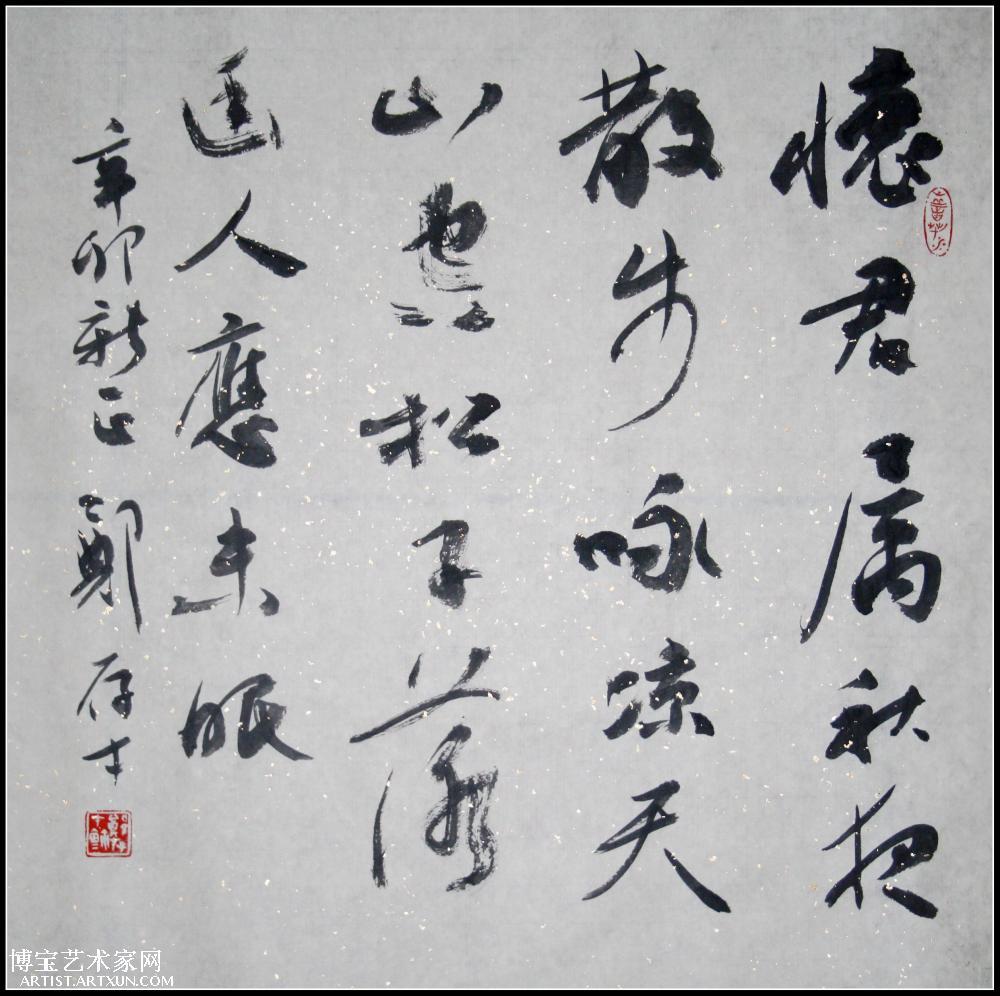 懷君属秋夜
散步咏凉天
山空松子落
幽人應未眠
辛卯新正 鄭
博宝艺术家网
ARTIST.ARTXUN.COM